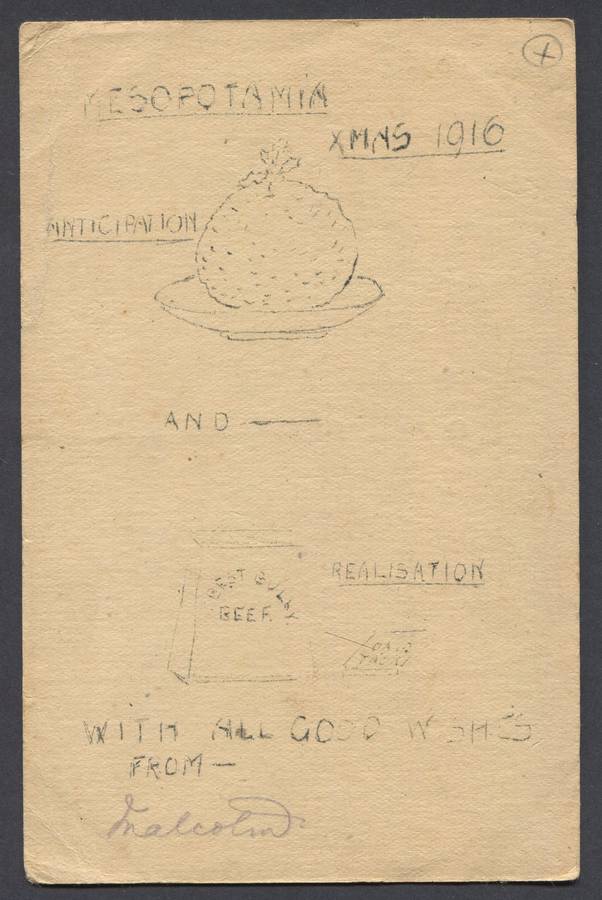 +
MESOPOTAMIA
XMAS 1916
ANTICIPATION
AND —
REALISATION
BEST BULLY
BEEF.
WITH ALL GOOD WISHES
FROM —
Malcolm